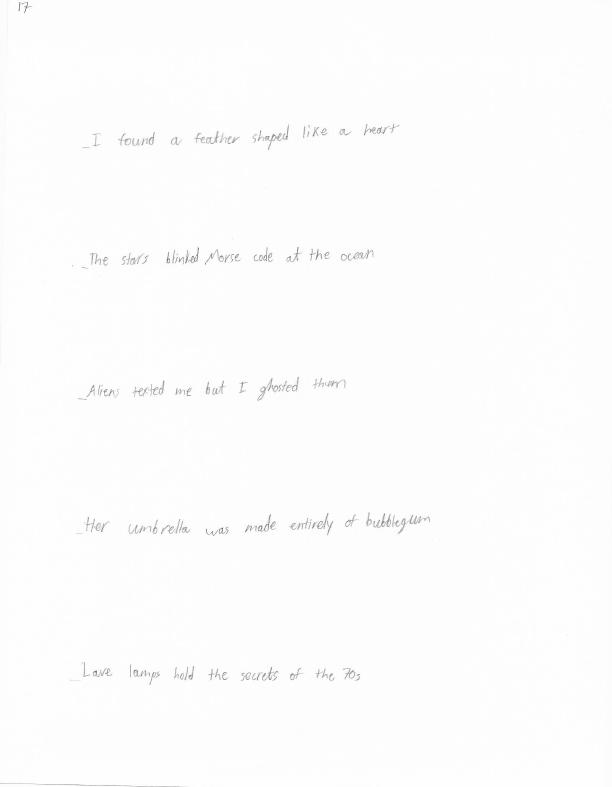 17
_I found a feather shaped like a heart
_The stars blinked Morse code at the ocean
_Aliens texted me but I ghosted them
_Her umbrella was made entirely of bubblegum
_Lave lamps hold the secrets of the 70s